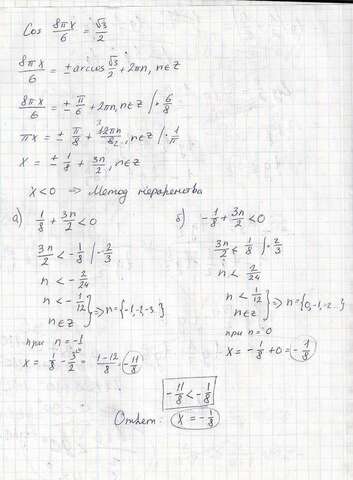 Cos 8πx/6 = √3/2
8πx/6 = ± arccos √3/2 + 2πn, n∈Z
8πx/6 = ± π/6 + 2πn, n∈Z | · 6/8
πx = ± π/8 + 12πn/8 2, n∈Z | · 1/π
x = ± 1/8 + 3n/2, n∈Z
x<0 => Метод неравенства
а) 1/8 + 3n/2 < 0
3n/2 < -1/8 | · 2/3
n < -2/24
n < -1/12
n∈Z } => n = {-1,-2,-3..}
при n = -1
x = 1/8 - 3/2 = 1-12/8 = -11/8
б) -1/8 + 3n/2 < 0
3n/2 < 1/8 | · 2/3
n < 2/24
n < 1/12
n∈Z } => n = {0,-1,-2..}
при n = 0
x = -1/8 + 0 = -1/8
-11/8 < -1/8
Ответ: x = -1/8